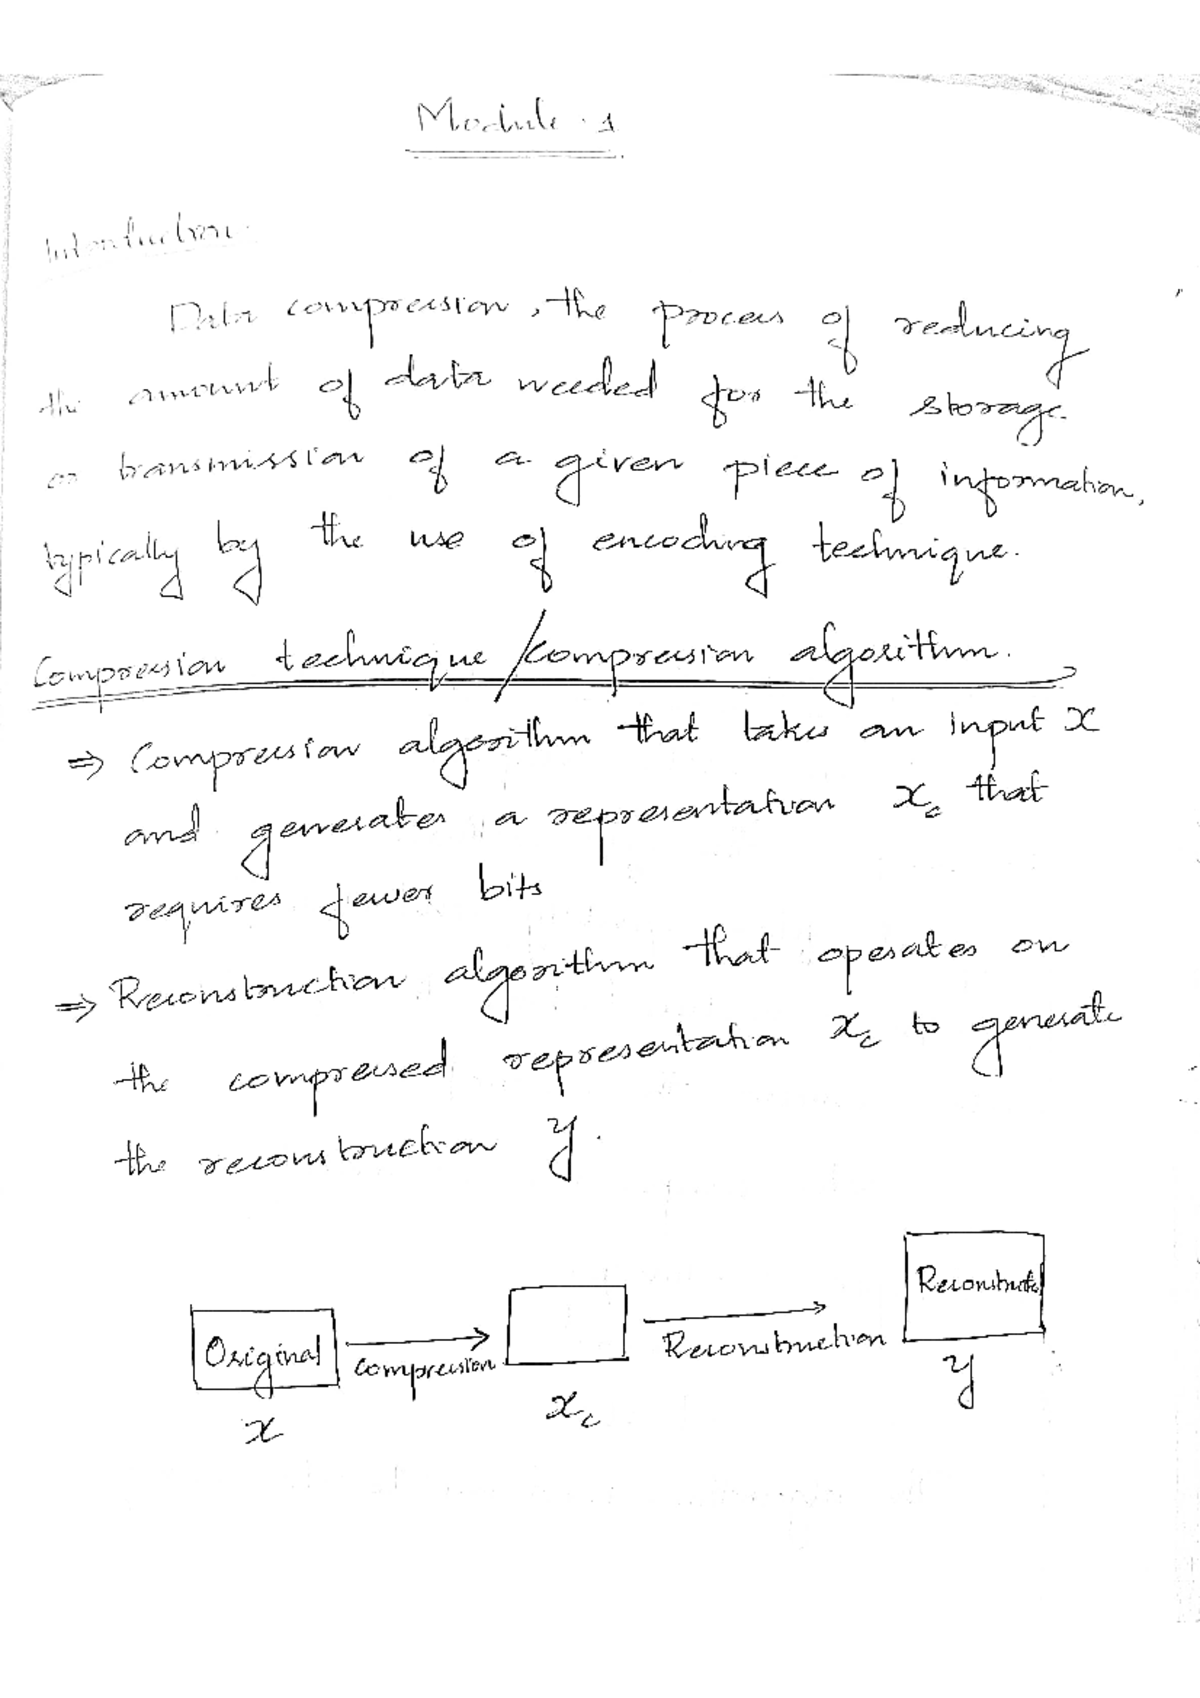 Module - 1
Introduction:
Data compression, the process of reducing
the amount of data needed for the storage
or transmission of a given piece of information,
typically by the use of encoding technique.
Compression technique / compression algorithm.
⇒ Compression algorithm that takes an input x
and generates a representation xc that
requires fewer bits
⇒ Reconstruction algorithm that operates on
the compressed representation xc to generate
the reconstruction y.
Original
compression
Reconstruction
Reconstructed
x
xc
y